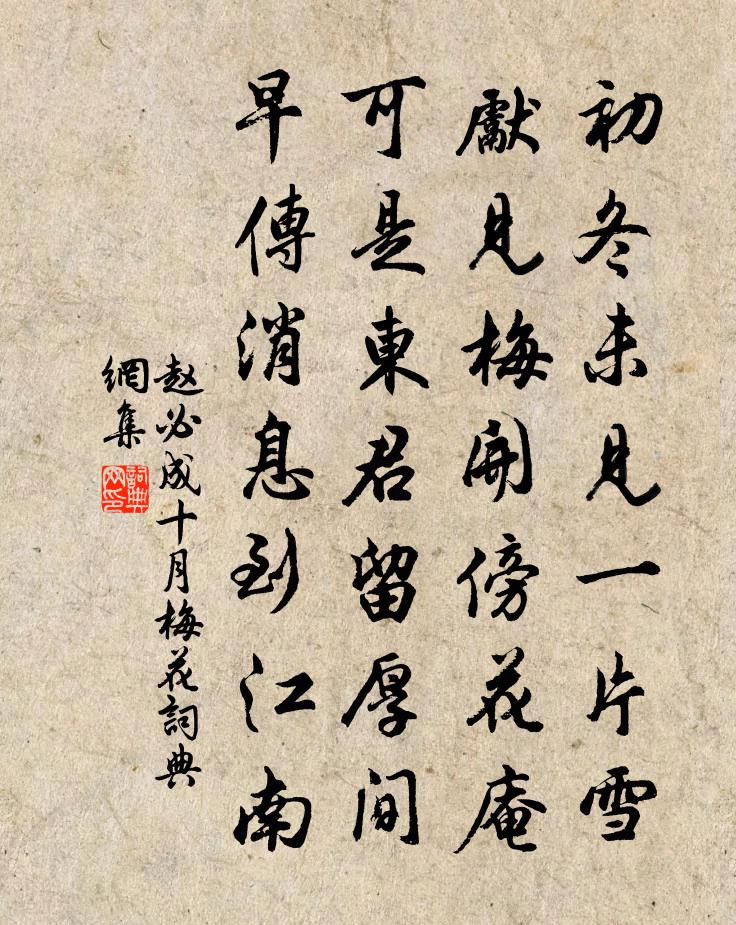 初冬未見一片雪
獻見梅開傍花庵
可是東君留厚间
早傳消息到江南
赵必成十月梅花詞典
網集
詞典
网印